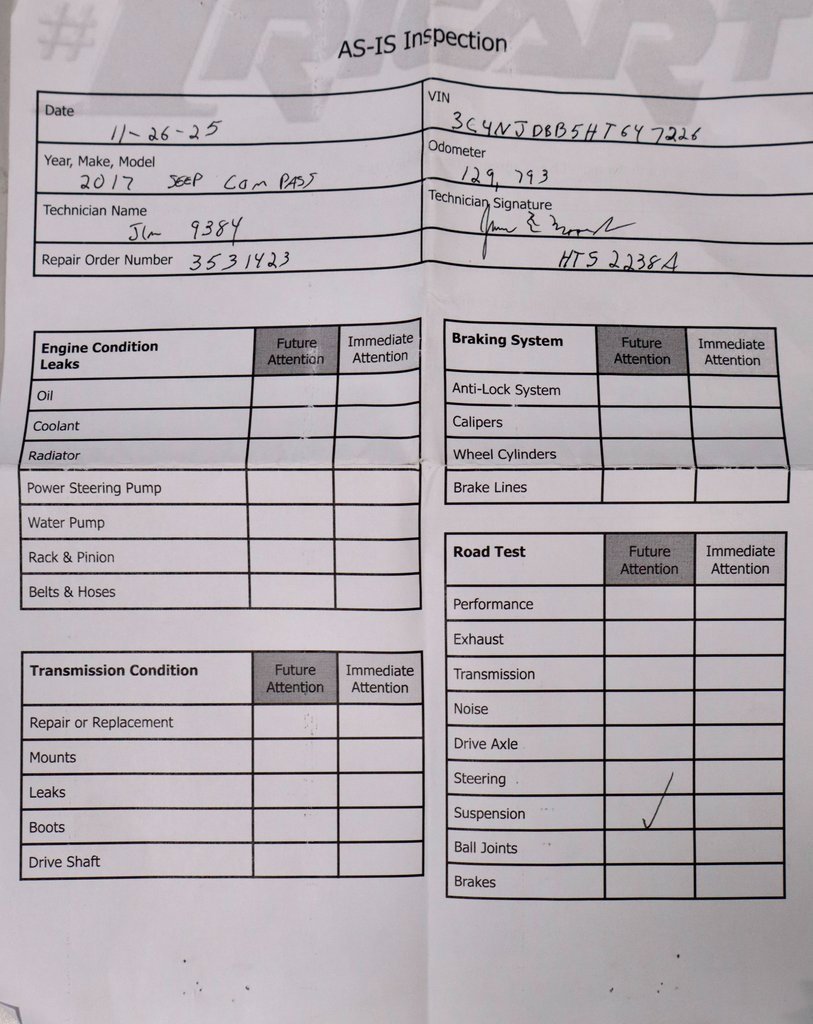 #1 RICART
AS-IS Inspection
Date 11-26-25
VIN 3C4NJDBB5HT647226
Year, Make, Model 2017 JEEP COMPASS
Odometer 129,793
Technician Name Jim 9384
Technician Signature
Repair Order Number 3531423
HTS 2238A
Engine Condition Leaks Future Attention Immediate Attention
Oil
Coolant
Radiator
Power Steering Pump
Water Pump
Rack & Pinion
Belts & Hoses
Braking System Future Attention Immediate Attention
Anti-Lock System
Calipers
Wheel Cylinders
Brake Lines
Transmission Condition Future Attention Immediate Attention
Repair or Replacement
Mounts
Leaks
Boots
Drive Shaft
Road Test Future Attention Immediate Attention
Performance
Exhaust
Transmission
Noise
Drive Axle
Steering
Suspension ✓
Ball Joints
Brakes